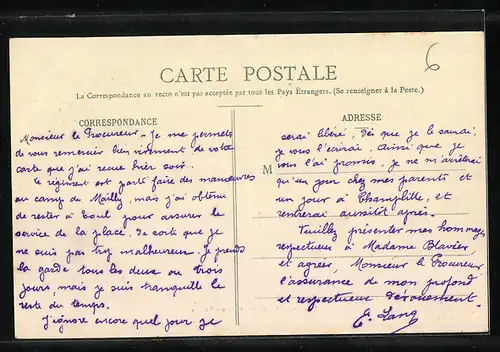 6
CARTE POSTALE
La Correspondance au recto n'est pas acceptée par tous les Pays Étrangers. (Se renseigner à la Poste.)
CORRESPONDANCE
Monsieur le Procureur. Je me permets
de vous remercier bien vivement de votre
carte que j'ai reçue hier soir.
Le régiment est parti faire des manœuvres
au camp de Mailly, mais j'ai obtenu
de rester à Toul pour assurer le
service de la place, de sorte que je
ne suis pas trop malheureux. Je prends
la garde tous les deux ou trois
jours, mais je suis tranquille le
reste du temps.
J'ignore encore quel jour je
ADRESSE
M
serai libéré. Dès que je le saurai,
je vous l'écrirai. Ainsi que je
vous l'ai promis, je ne m'arrêterai
qu'un jour chez mes parents et
un jour à Champlitte, et
rentrerai aussitôt après.
Veuillez présenter mes hommages
respectueux à Madame Blavier,
et agréer, Monsieur le Procureur,
l'assurance de mon profond
et respectueux dévouement.
E. Lang